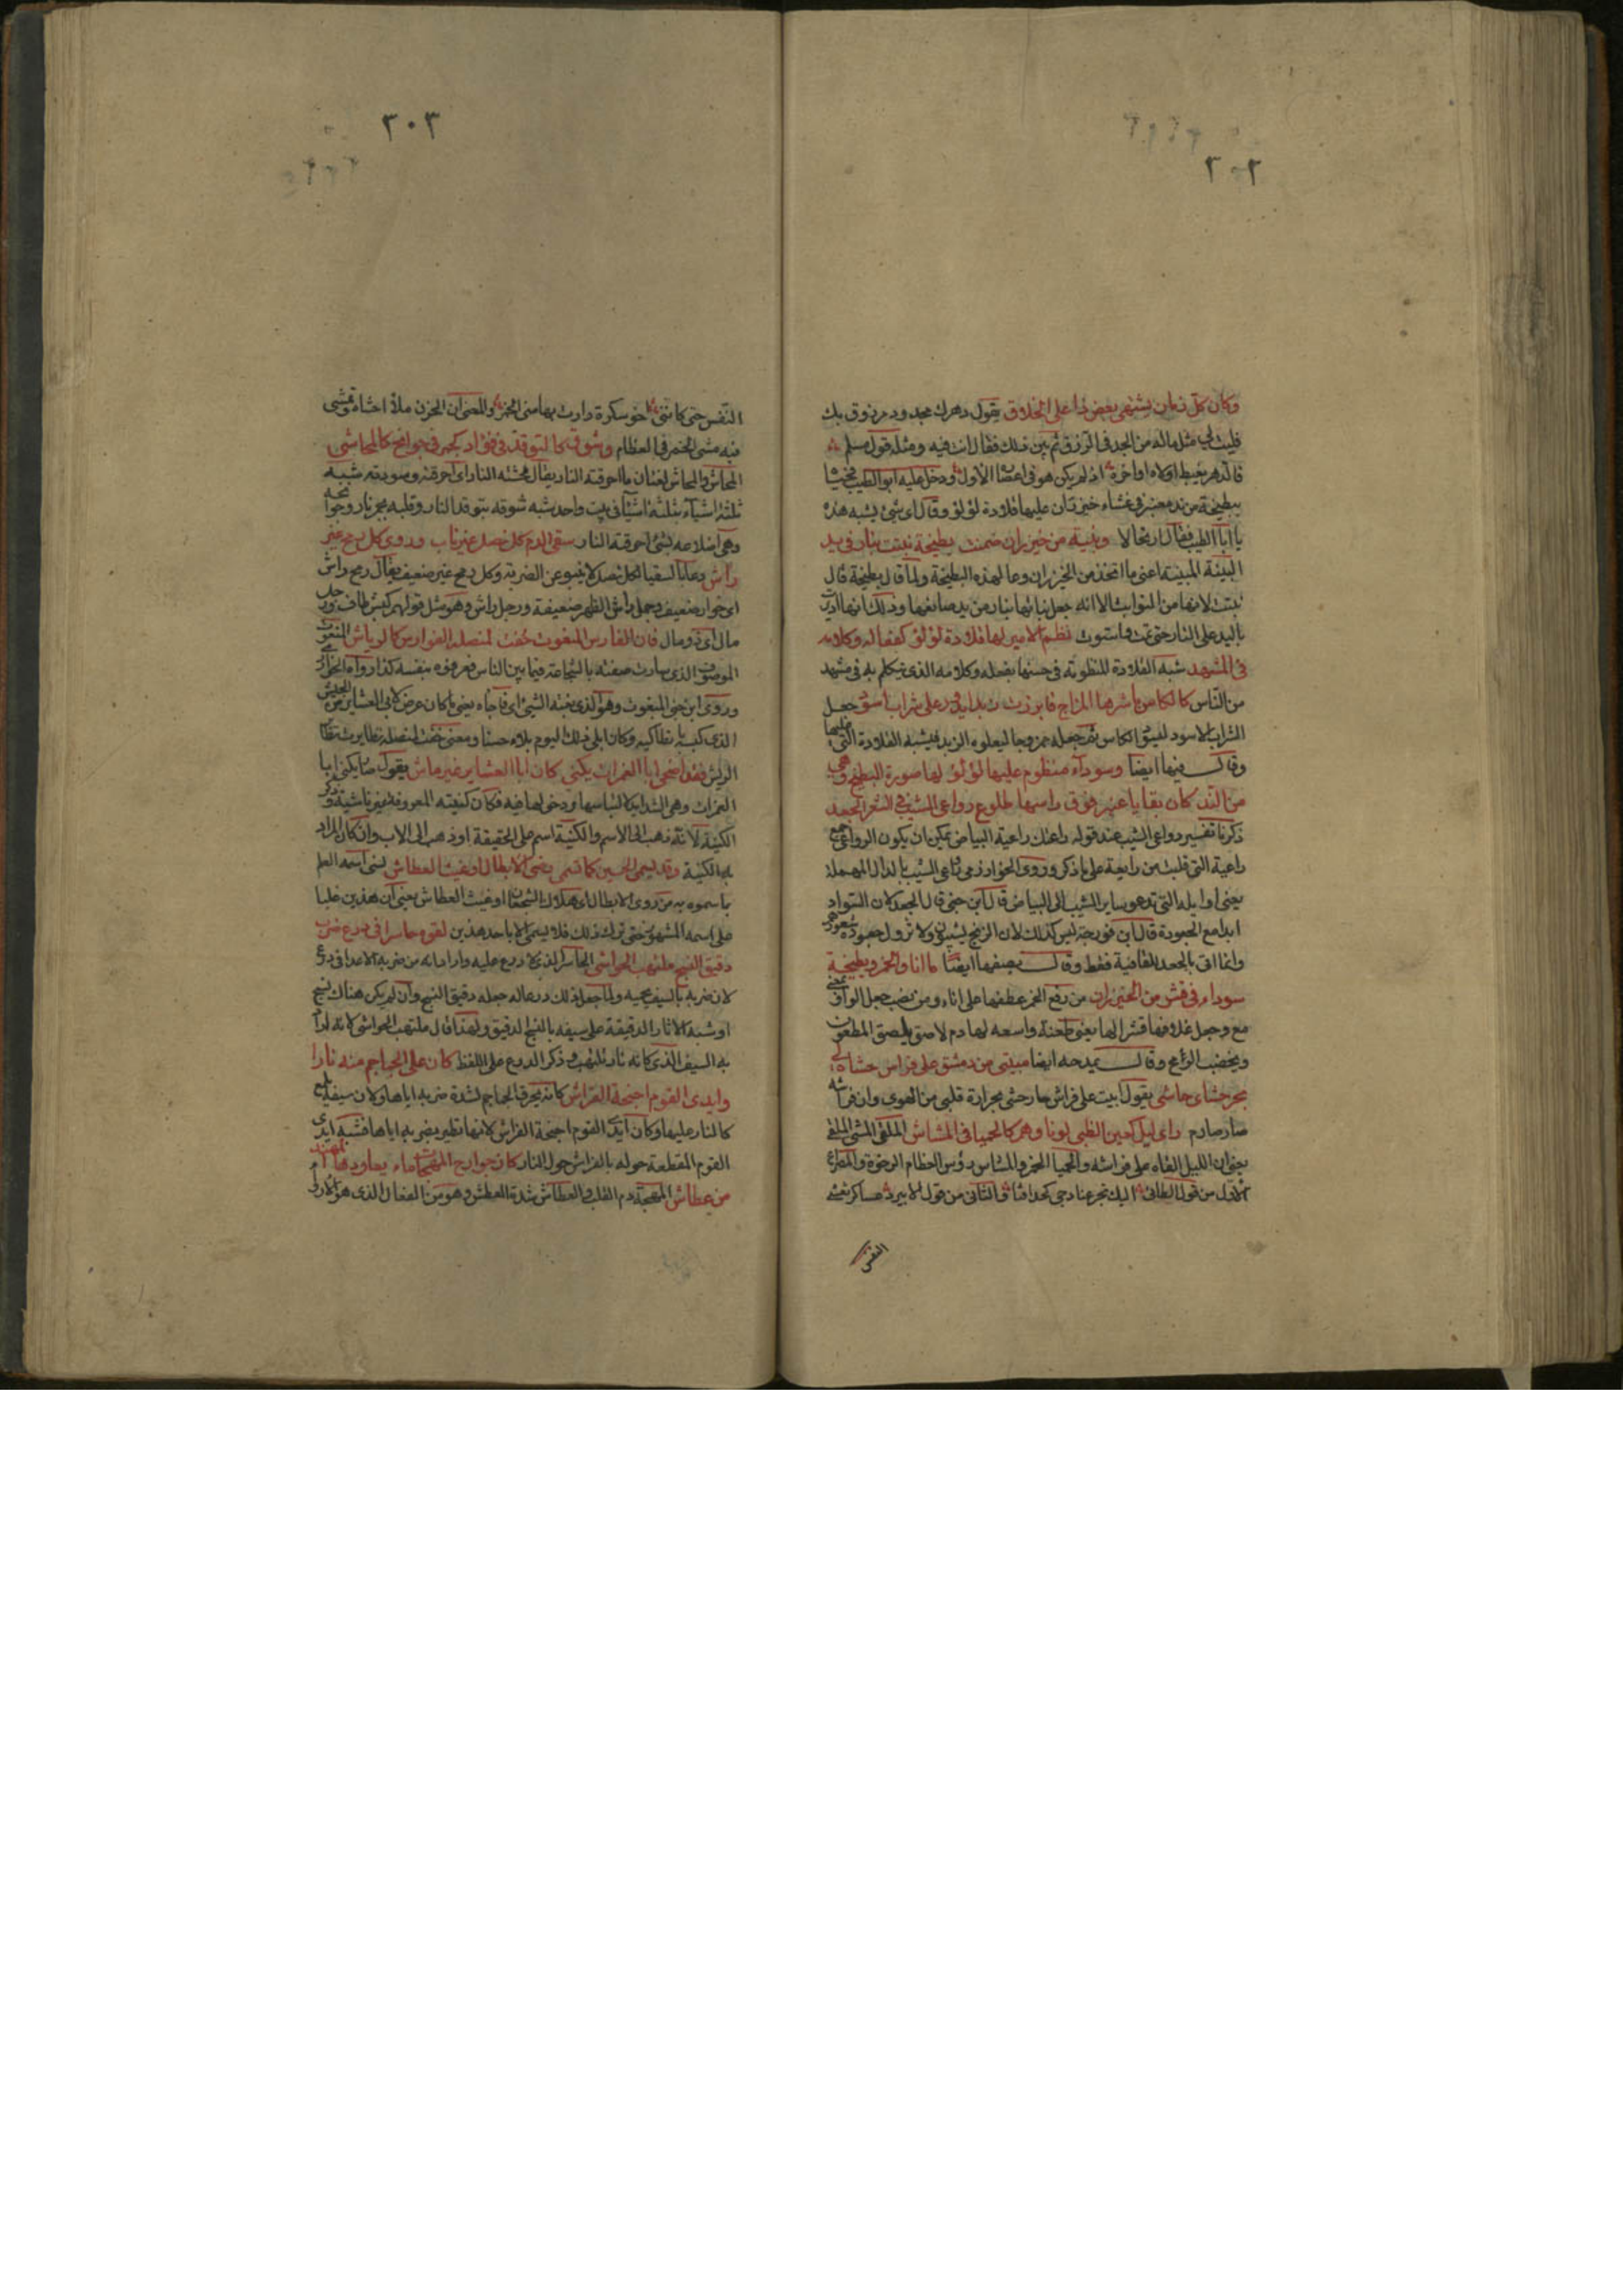 ٢٠٢
وكان كل زمان يشتهى بعض ذا على الخلاق يقول دهرك مجدود مرزوق بك
فليت لي مثل ماله من الجد في الرزق ثم بين ذلك فقال انت فيه ومثله قول مسلم
فالدهر يغبط اولاه اواخره اذ لم يكن هو في اعصاره الاول ودخل عليه ابو الطيب
ببطيخة من ند معنبر في غشاء خيزران عليها قلادة لؤلؤ وقال اى شئ يشبه هذه
يا ابا الطيب فقال ارتجالا وبنية من خيزران ضمنت بطيخة نبتت بنار في يد
البنية المبنية اعنى ما اتخذ من الخيزران وعا لهذه البطيخة ولما قال بطيخة قال
نبتت لانها من النوابت الا انه جعل نباتها بنار من يد صانعها وذلك انها اديرت
باليد على النار حتى تمت واستوت نظم الامير لها قلادة لؤلؤ كفعاله وكلامه
في المشهد شبه القلادة المنظومة في حسنها بفعله وكلامه الذى يتكلم به في مشهد
من الناس كالكاس باشرها المزاج فابرزت زبدا يدور على شراب اسود جعل
الشراب الاسود لسواد الكاس ثم جعله ممزوجا ليعلوه الزبد فيشبه القلادة التي عليها
وقال فيها ايضا وسوداء منظوم عليها لؤلؤ لها صورة البطيخ وهي
من الند كان بقايا عنبر فوق راسها طلوع رواعى الشيب في الشعر الجعد
ذكرنا تفسير رواعى الشيب عند قوله راعتك راعية البياض يمكن ان يكون الرواعى جمع
راعية التي قلبت من رايعة على ما ذكر وروى الخوارزمى دواعى الشيب بالدال المهملة
يعنى اوايله التي تدعو ساير الشيب الى البياض قال ابن جنى قال الجعد لان السواد
ابدا مع الجعودة قال ابن فورجة ليس كذلك لان الزنج يشيبون ولا تزول جعودة شعورهم
وانما اتى بالجعد للقافية فقط وقال يصفها ايضا ما انا والخمر وبطيخة
سوداء في قشر من الخيزران من رفع الخمر عطفها على انا ومن نصب جعل الواو بمعنى
مع وجعل غلافها قشرا لها يعنى طعنة واسعة لها دم لاصق يلصق المطعون
ويخضب الرمح وقال يمدحه ايضا مبيتى من دمشق على فراش حشاه لى
بحر حشاى حاشى يقول ابيت على فراش حار حشى بحرارة قلبى من الهوى وان فراشه
صار صادم راى ليل كعين الظبى لونا وهم كالحميا في المشاش الملقى الملقى
يعنى ان الليل القاه على فراشه والحميا الخمر والمشاش رؤس العظام الرخوة والمصراع
الاول من قول الطائى اليك تجرعنا دجى كحداقنا والثانى من قول الابيرد عساكر تغشى
النفس
٣٠٣
النفس حتى كاننى اخو سكرة دارت بهامتى الخمر والمعنى ان الحزن ملأ احشاءه وتمشى
فيه مشى الخمر في العظام وشوق كالتوقد في فؤاد كجمر في جوانح كالمحاش
المحاش والمحاش لغتان ما احرقته النار يقال محشته النار اى احرقته وسودته شبه
ثلثة اشياء بثلثة اشياء في بيت واحد شبه شوقه بتوقد النار وقلبه بجمر نار وجوانحه
وهى اضلاعه بشئ احرقته النار سقى الدم كل نصل غير ناب وروى كل رمح غير
راش دعا بالسقيا لكل نصل لا ينبو عن الضريبة وكل رمح غير ضعيف يقال رمح راش
اى خوار ضعيف وجمل راش الظهر ضعيفه ورجل راش وهو مثل قولهم كبش صاف ورجل
مال اى ذو مال فان الفارس المنعوت خفت لمنصله الفوارس كالرياش المنعوت
الموصوف الذى سارت صفته بالشجاعة فيما بين الناس فعرفوه بنفسه كذا رواه الخوارزمى
وروى ابن جنى المبغوت وهو الذى بغته الشئ اى فاجاه يعنى ما كان عرض لابى العشاير من الجيش
الذى كبسه بانطاكيه وكان ابلى ذلك اليوم بلاء حسنا ومعنى خفت لمنصله تطايرت تطاير
الريش فقد اضحى ابا الغمرات يكنى كان ابا العشاير غير فاش يقول صار يكنى ابا
الغمرات وهى الشدايد لالتباسها ودخولها فيه فكان كنيته المعروفة غير فاشية وذكر
الكنية لانه ذهب الى الاسم والكنية اسم على الحقيقة او ذهب الى الاب وان كان المراد
به الكنية وقد نسى الحسين بما تسمى ردى الابطال او غيث العطاش نسى اسمه العلم
بما سموه به من ردى الابطال اى هلاك الشجعان او غيث العطاش يعنى ان هذين غلبا
على اسمه المشهور حتى ترك ذلك فلا يسمى الا باحد هذين لقوه حاسرا في درع ضرب
دقيق النسج ملتهب الحواشى الحاسر الذى لا درع عليه واراد انه من ضربه الاعدا في درع
لان ضربه بالسيف يحميه ولما جعل ذلك درعا له جعله دقيق النسج وان لم يكن هناك نسج
او شبه الاثار الدقيقة على سيفه بالنسج الدقيق ولهذا قال ملتهب الحواشى لانه اراد
به السيف الذى كانه نار تلتهب وذكر الدرع على اللفظ كان على الجماجم منه نارا
وايدى القوم اجنحة الفراش كانه يحرق الجماجم لشدة ضربه اياها ولان سيفه يلمع
كالنار عليها وكان ايدى القوم اجنحة الفراش لانها تطير بضربه اياها فشبه ايدى
القوم المقطعة حوله بالفراش حول النار كان جوارى المهجات ماء يعاودها المهند
من عطاش المهجة دم القلب والعطاش شدة العطش وهو من الفعال الذى هو للادواء